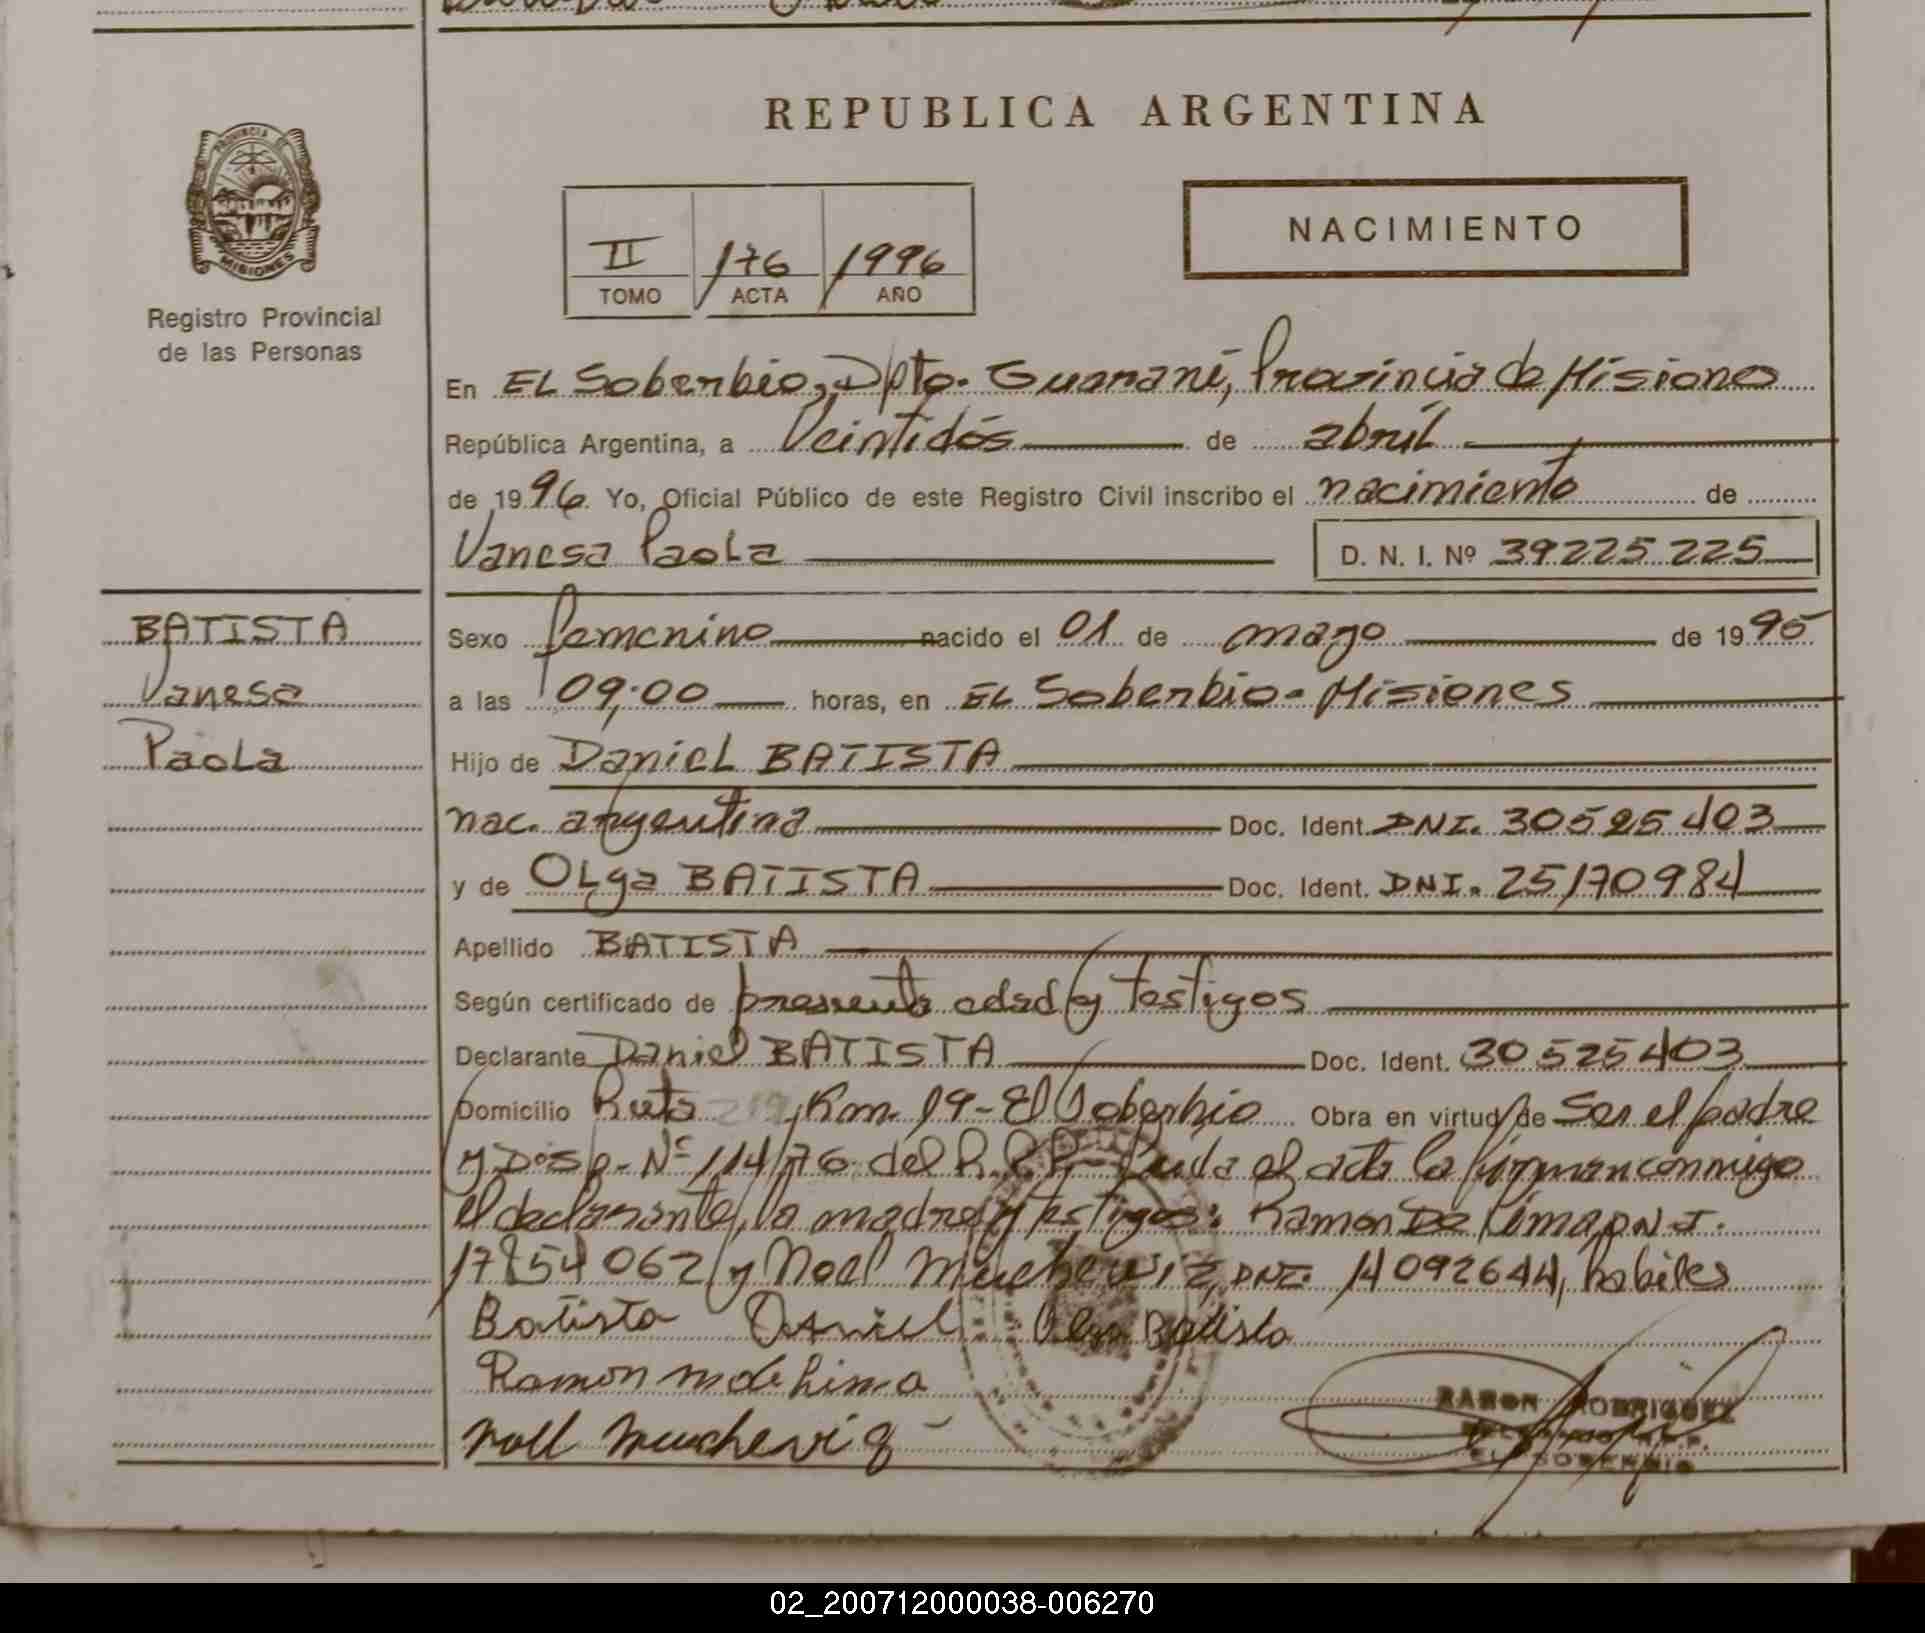 REPUBLICA ARGENTINA
PROVINCIA DE
MISIONES
Registro Provincial
de las Personas
II 176 1996
TOMO ACTA AÑO
NACIMIENTO
En EL Soberbio, Dpto. Guaraní, Provincia de Misiones
República Argentina, a Veintidós de abril
de 1996 Yo, Oficial Público de este Registro Civil inscribo el nacimiento de
Vanesa Paola D. N. I. Nº 39225225
BATISTA
Vanesa
Paola
Sexo femenino nacido el 01 de mayo de 1995
a las 09,00 horas, en EL Soberbio - Misiones
Hijo de Daniel BATISTA
nac. argentina Doc. Ident. DNI. 30525403
y de OLga BATISTA Doc. Ident. DNI. 25170984
Apellido BATISTA
Según certificado de presunta edad y testigos
Declarante Daniel BATISTA Doc. Ident. 30525403
Domicilio Ruta Km. 19 - El Soberbio Obra en virtud de Ser el padre
y Disp. Nº 114/76 del R.P.P. Leida el acta la firman conmigo
el declarante, la madre y testigos: Ramon De Lima, D.N.I.
17854062 y Noel Mucheviz, DNI. 14092644, habiles
Batista Daniel Olga Batista
Ramon m de Lima
noll mucheviz
RAMON RODRIGUEZ
EL SOBERBIO
02_200712000038-006270